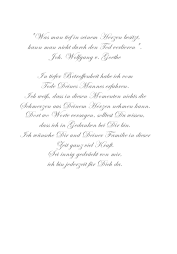 "Was man tief in seinem Herzen besitzt,
kann man nicht durch den Tod verlieren".
Joh. Wolfgang v. Goethe
In tiefer Betroffenheit habe ich vom
Tode Deines Mannes erfahren.
Ich weiß, dass in diesen Momenten nichts die
Schmerzen aus Deinem Herzen nehmen kann.
Dort wo Worte versagen, solltest Du wissen,
dass ich in Gedanken bei Dir bin.
Ich wünsche Dir und Deiner Familie in dieser
Zeit ganz viel Kraft.
Sei innig gedrückt von mir,
ich bin jederzeit für Dich da.